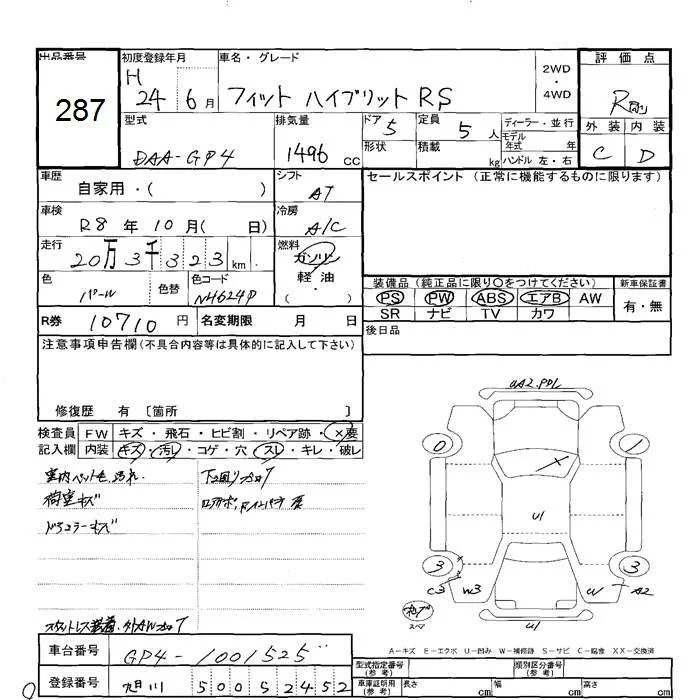 出品番号
287
初度登録年月
H
24 6月
車名・グレード
フィット ハイブリット RS
2WD
・
4WD
評価点
R
外装 内装
C D
型式
DAA-GP4
排気量
1496 cc
ドア 5
形状
定員 5 人
積載 kg
ディーラー・並行
モデル
年式 年
ハンドル 左・右
車歴
自家用・( )
シフト
AT
セールスポイント (正常に機能するものに限ります)
車検
R8 年 10 月( 日)
冷房
A/C
走行
20万3千323 km
燃料
ガソリン
軽油
( )
色
パール
色替
色コード
NH624P
装備品 (純正品に限り〇をつけてください)
新車保証書
PS PW ABS エアB AW
有・無
SR ナビ TV カワ
R券
10710 円
名変期限 月 日
後日品
注意事項申告欄(不具合内容等は具体的に記入して下さい)
修復歴 有 〔箇所 〕
検査員
記入欄
FW キズ・飛石・ヒビ割・リペア跡・×要
内装 キズ・汚レ・コゲ・穴・スレ・キレ・破レ
荷室キズ
AA2.PDL
0 1
U1
3 3
C3 W3 W A2
U1
スペア
A-キズ E-エクボ U-凹み W-補修跡 S-サビ C-腐食 XX-交換済
車台番号
GP4-1001525
登録番号
旭川 500 5 2452
0
型式指定番号
(参考)
類別区分番号
(参考)
車庫証明用
(参考)
長さ cm 幅 cm 高さ cm